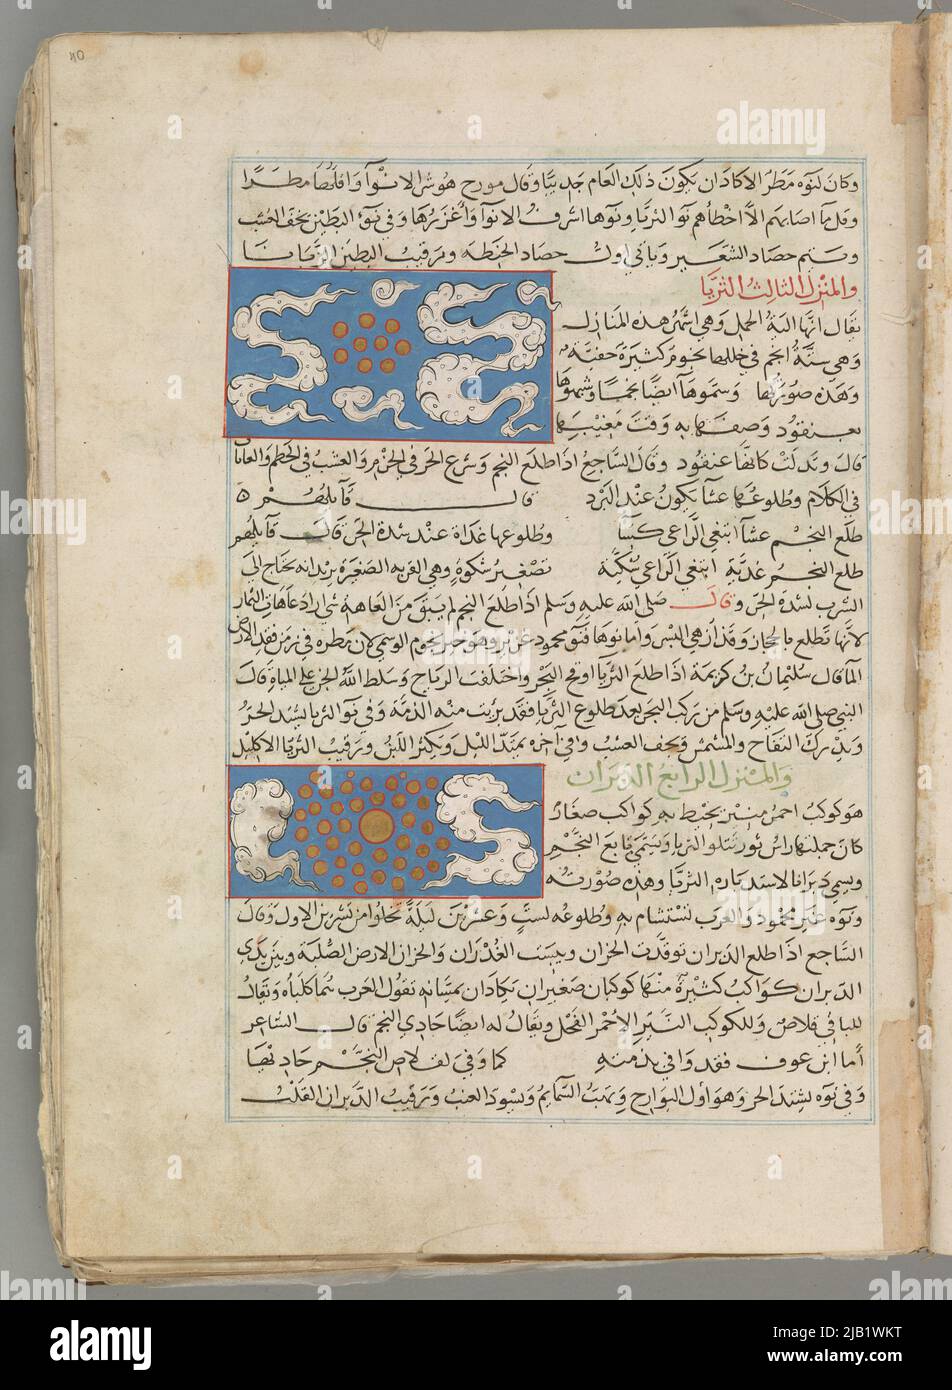 وكان لنوه مطر الا كادان يكون ذلك العام جديبا وقال مورج هو شر الانوآ واقلها مطرا
وقل ما اصابهم الا اخطأهم نو الثريا ونوها اشرف الانوآ واغزرها وفي نوء البطين يجف العشب
ويتم حصاد الشعير وياتي اول حصاد الحنطة ورقيب البطين الزبانا
والمنزل الثالث الثريا
يقال انها الية الحمل وهي اشهر هذه المنازل
وهي ستة انجم في خللها نجوم كثيرة خفية
وهذه صورتها وسموها ايضا نجما وشبهوها
بعنقود وصفها به وقت مغيبها
قال وتدلت كانها عنقود وقال الساجع اذا طلع النجم وسرع الحر في الحزم والعشب في الحطم والعانات
في الكلام وطلوعها عشآ يكون عند البرد قال قآيلهم
طلع النجم عشآ ابتغى الراعي كسآ وطلوعها غداة عند شدة الحر قال قآيلهم
طلع النجم غدية ابتغى الراعي شكية تصغير شكوة وهي القربة الصغيرة يريد انه يحتاج الى
الشرب لشدة الحر وقال صلى الله عليه وسلم اذا طلع النجم لم يبق من العاهة شي اراد عاهات الثمار
لانها تطلع بالحجاز وقد ازهى البسر واما نوها فنو محمود غزير وهو خير نجوم الوسمي لان مطره في زمن فقد الارض
المآ قال سليمان بن كريمة اذا طلع الثريا ارتج البحر واختلفت الرياح وسلط الله الجن على المياة قال
النبي صلى الله عليه وسلم من ركب البحر بعد طلوع الثريا فقد برئت منه الذمة وفي نو الثريا يشتد الحر
ويدرك التفاح والمشمش ويجف العشب وفي آخره يمتد الليل ويكثر اللبن ورقيب الثريا الاكليل
والمنزل الرابع الدبران
هو كوكب احمر منير يحيط به كواكب صغار
كان جملتها راس ثور تتلو الثريا ويسمى تابع النجم
ويسمى دبرانا لاستدباره الثريا وهذه صورته
ونوه غير محمود والعرب تستشام به وطلوعه لست وعشرين ليلة تخلوا من تشرين الاول وقال
الساجع اذا طلع الدبران توقدت الحزان ويبست الغدران والحزان الارض الصلبة وبين يدي
الدبران كواكب كثيرة منها كوكبان صغيران يكادان يتماسان تقول العرب هما كلباه ويقال
للباقي قلاص وللكوكب النير الاحمر الفحل ويقال له ايضا حادي النجم قال الشاعر
أما ابن عوف فقد وافى بذمته كما وفى بقلاص النجم حاديها
وفي نوه يشتد الحر وهو اول البوارح وتهب السمايم ويسود العنب ورقيب الدبران القلب
alamy
Image ID: 2JB1WKT
www.alamy.com